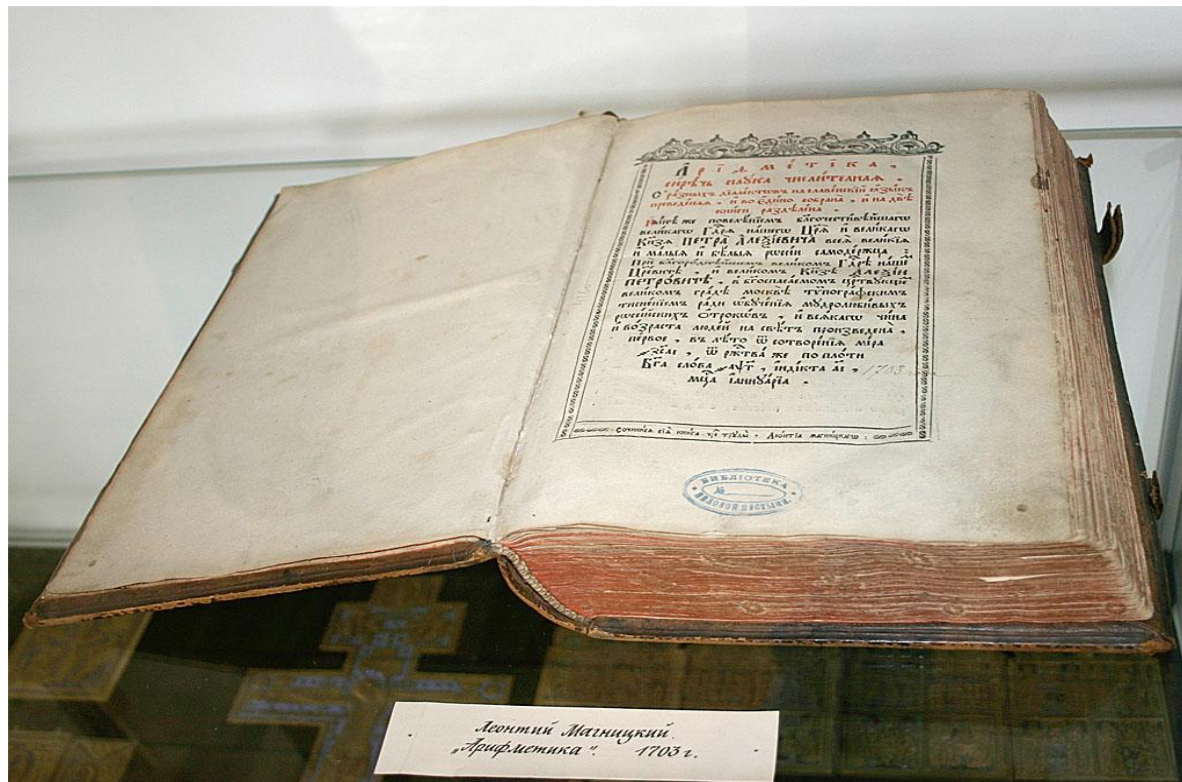 А҆рїѳме́тїка ,
сирѣ́чь наꙋ́ка числи́телнаѧ .
С̾ ра́зныхъ дїале́ктѡвъ на слаⷡ҇е́нскїй ꙗ҆зы́къ
преведе́наѧ , и҆ во є҆ди́но собрана̀ , и҆ на двѣ̀
кни́ги раздѣлена̀ .
Ны́нѣ же повелѣ́нїемъ бл҃гочести́вѣйшагѡ
вели́кагѡ Гдⷭ҇рѧ на́шегѡ Цр҃ѧ̀ и҆ вели́кагѡ
Кн҃зѧ ПЕТРА̀ А҆ЛЕѮІ́ЕВИЧА всеѧ̀ вели́кїѧ
и҆ ма́лыѧ и҆ бѣ́лыѧ рѡссі́и самоде́ржца :
При бл҃горо́днѣйшемъ вели́комъ Гдⷭ҇рѣ на́шемъ
Цр҃е́вичѣ , и҆ вели́комъ Кн҃зѣ А҆ЛЕѮІ́И
ПЕТРО́ВИЧѢ , в̾ бг҃оспаса́емомъ ца́рствꙋющемъ
вели́комъ гра́дѣ москвѣ̀ тѷпогра́фскимъ
тисне́нїемъ ра́ди ѡ҆бꙋче́нїѧ мꙋдролюби́выхъ
рѡссі́йскихъ ѻ҆́трокѡвъ , и҆ всѧ́кагѡ чи́на
и҆ во́зраста люде́й на свѣ́тъ произведена̀ ,
пе́рвое , въ лѣ́то ѿ сотворе́нїѧ мі́ра
҂зс҃аі , ѿ ржⷭ҇тва́ же по пло́ти
Бг҃а сло́ва ҂аѱ҃г , їнді́кта а҃і , 1703
мцⷭ҇а і҆аннꙋа́рїа .
Сочини́сѧ сїѧ̀ кни́га чрез̾ трꙋды̀ . Лео́нтїа магни́цкагѡ :
БИБЛІОТЕКА
№
Леонтий Магницкий.
„Арифметика“. 1703 г.